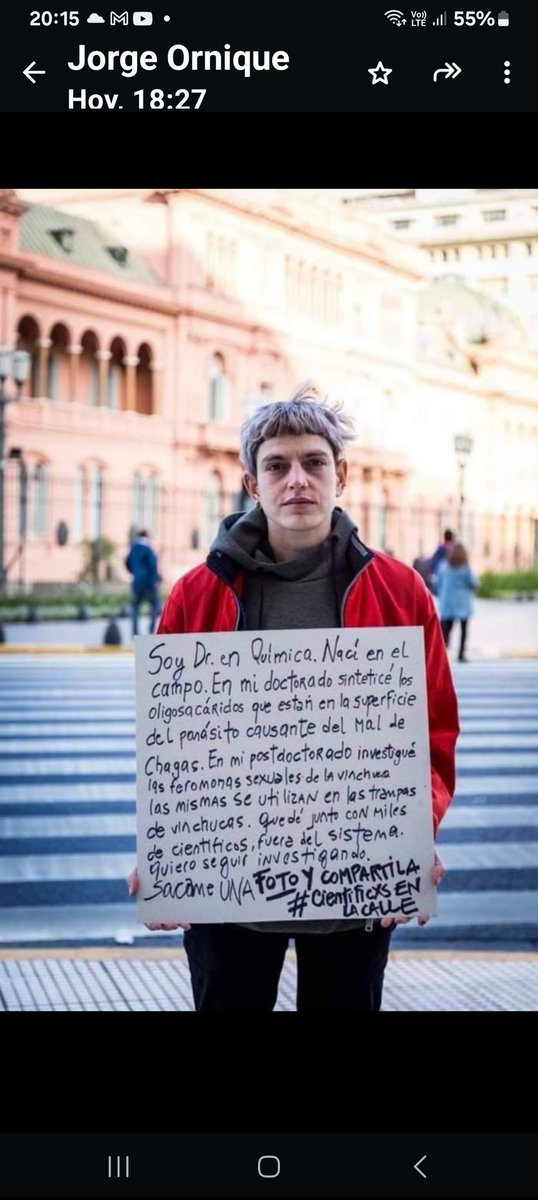 20:15
Vo))
LTE
55%
Jorge Ornique
Hoy, 18:27
Soy Dr. en Química. Nací en el
campo. En mi doctorado sinteticé los
oligosacáridos que están en la superficie
del parásito causante del Mal de
Chagas. En mi postdoctorado investigué
las feromonas sexuales de la vinchuca
las mismas se utilizan en las trampas
de vinchucas. Quedé junto con miles
de científicos, fuera del sistema.
Quiero seguir investigando.
Sacame UNA FOTO Y COMPARTILA
#CientíficXs EN
LA CALLE